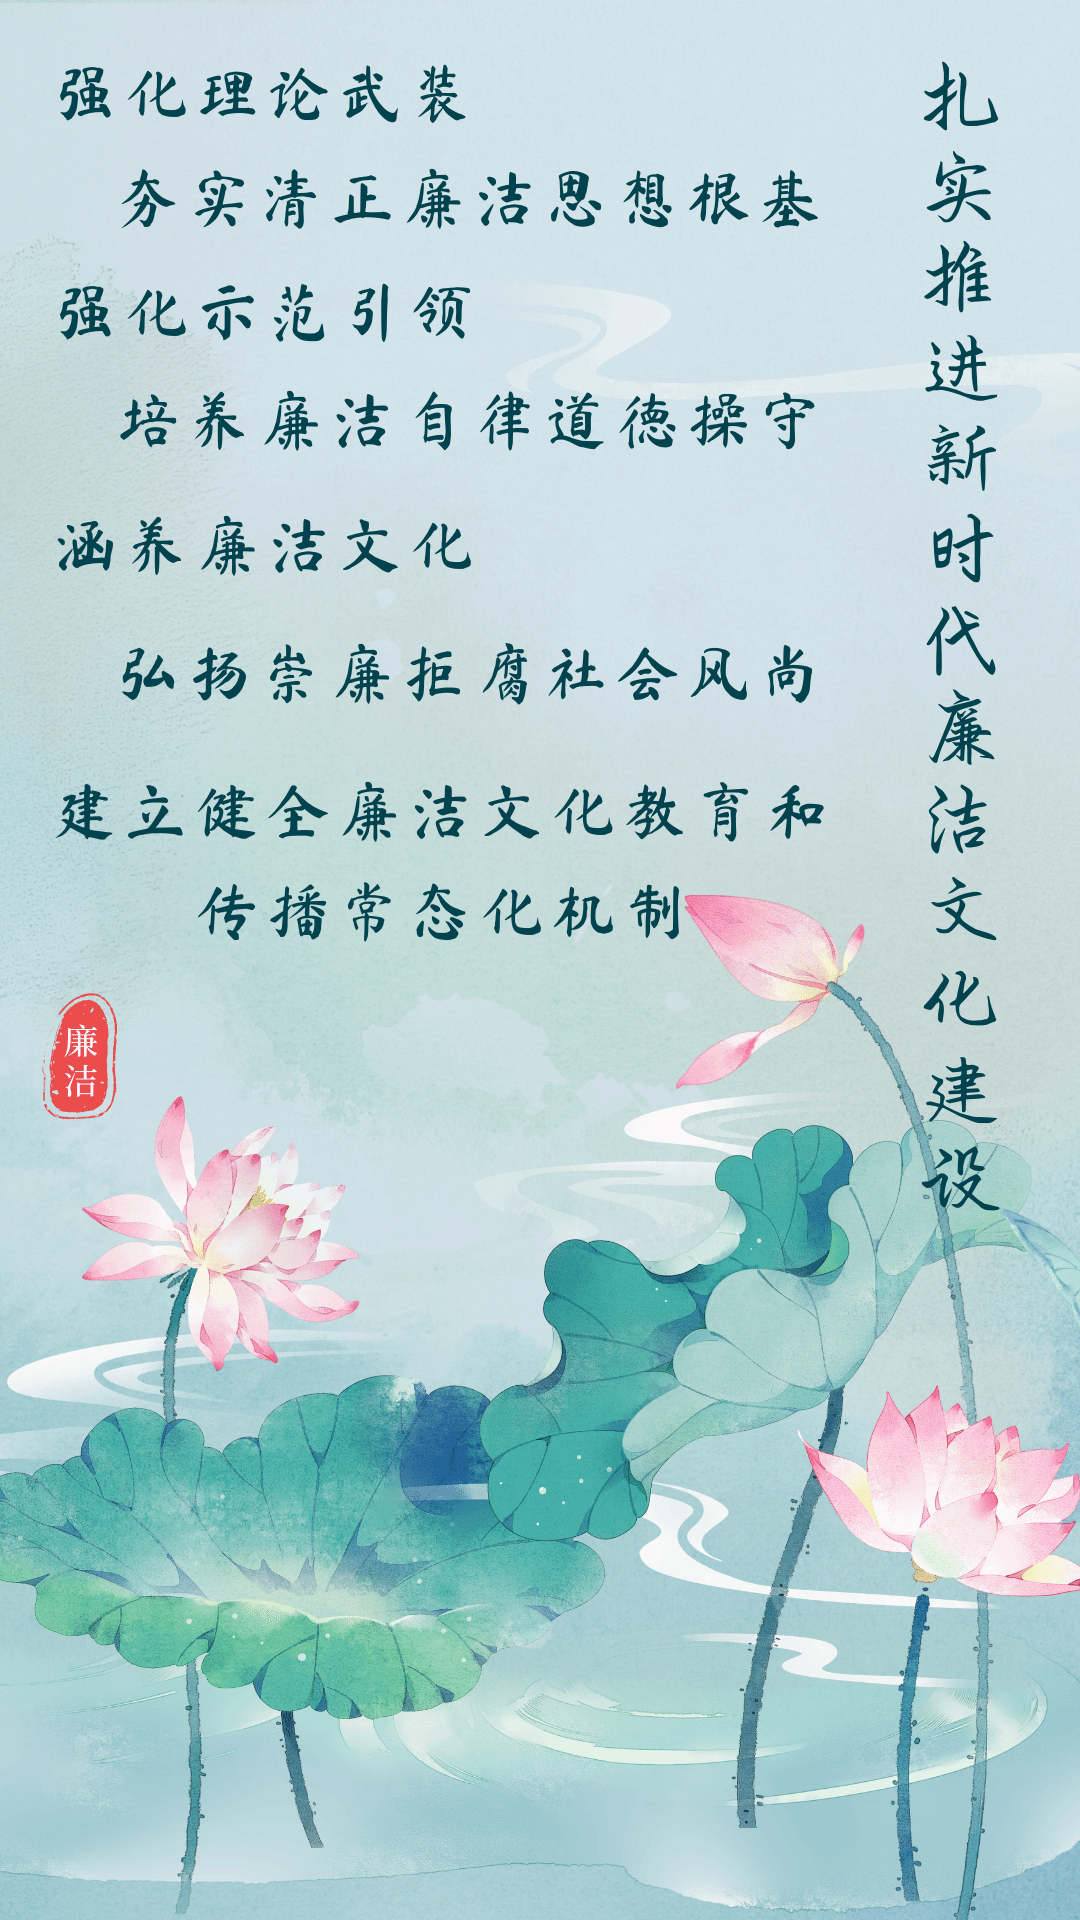 扎实推进新时代廉洁文化建设
强化理论武装
夯实清正廉洁思想根基
强化示范引领
培养廉洁自律道德操守
涵养廉洁文化
弘扬崇廉拒腐社会风尚
建立健全廉洁文化教育和
传播常态化机制
廉洁